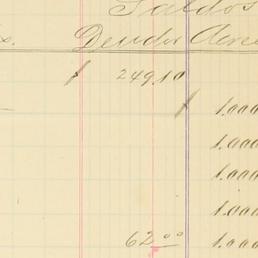 Saldos
Deudor Acree
$ 249.10
$ 1.000
1.000
1.000
1.000
62 00 1.000